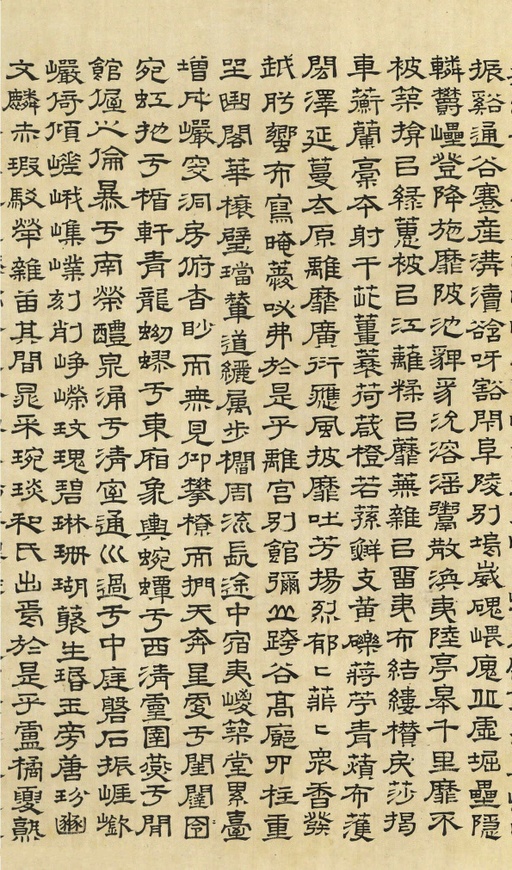 振谿通谷蹇產溝瀆谽呀豁閕阜陵別塢崴磈㟪廆丘虛堀礨隱
轔鬱㠥登降施靡陂池貏豸沇溶淫鬻散渙夷陸亭皋千里靡不
被築揜以綠蕙被以江蘺糅以蘼蕪雜以畱夷布結縷欑戾莎揭
車蘅蘭稾本射干茈薑蘘荷葴橙若蓀鮮支黃礫蔣苧青薠布濩
閎澤延蔓太原離靡廣衍應風披靡吐芳揚烈郁〻菲〻衆香發
越肸蠁布寫晻薆咇茀於是乎離宮別館彌山跨谷高廊四柱重
坐曲閣華榱璧璫輦道纚屬步櫩周流長途中宿夷嵕築堂累臺
增成巖窔洞房俯杳眇而無見仰攀橑而捫天奔星更于閨闥
宛虹扡于楯軒青龍蚴蟉于東廂象輿蜿蟫于西清靈圉燕于閒
館偓之倫暴于南榮醴泉涌于清室通川過于中庭磐石振崖嶔
巖倚傾嵯峨嶕嶫刻削崢嶸玫瑰碧琳珊瑚叢生瑉玉旁唐玢豳
文麟赤瑕駁犖雜臿其間晁采琬琰和氏出焉於是乎盧橘夏熟